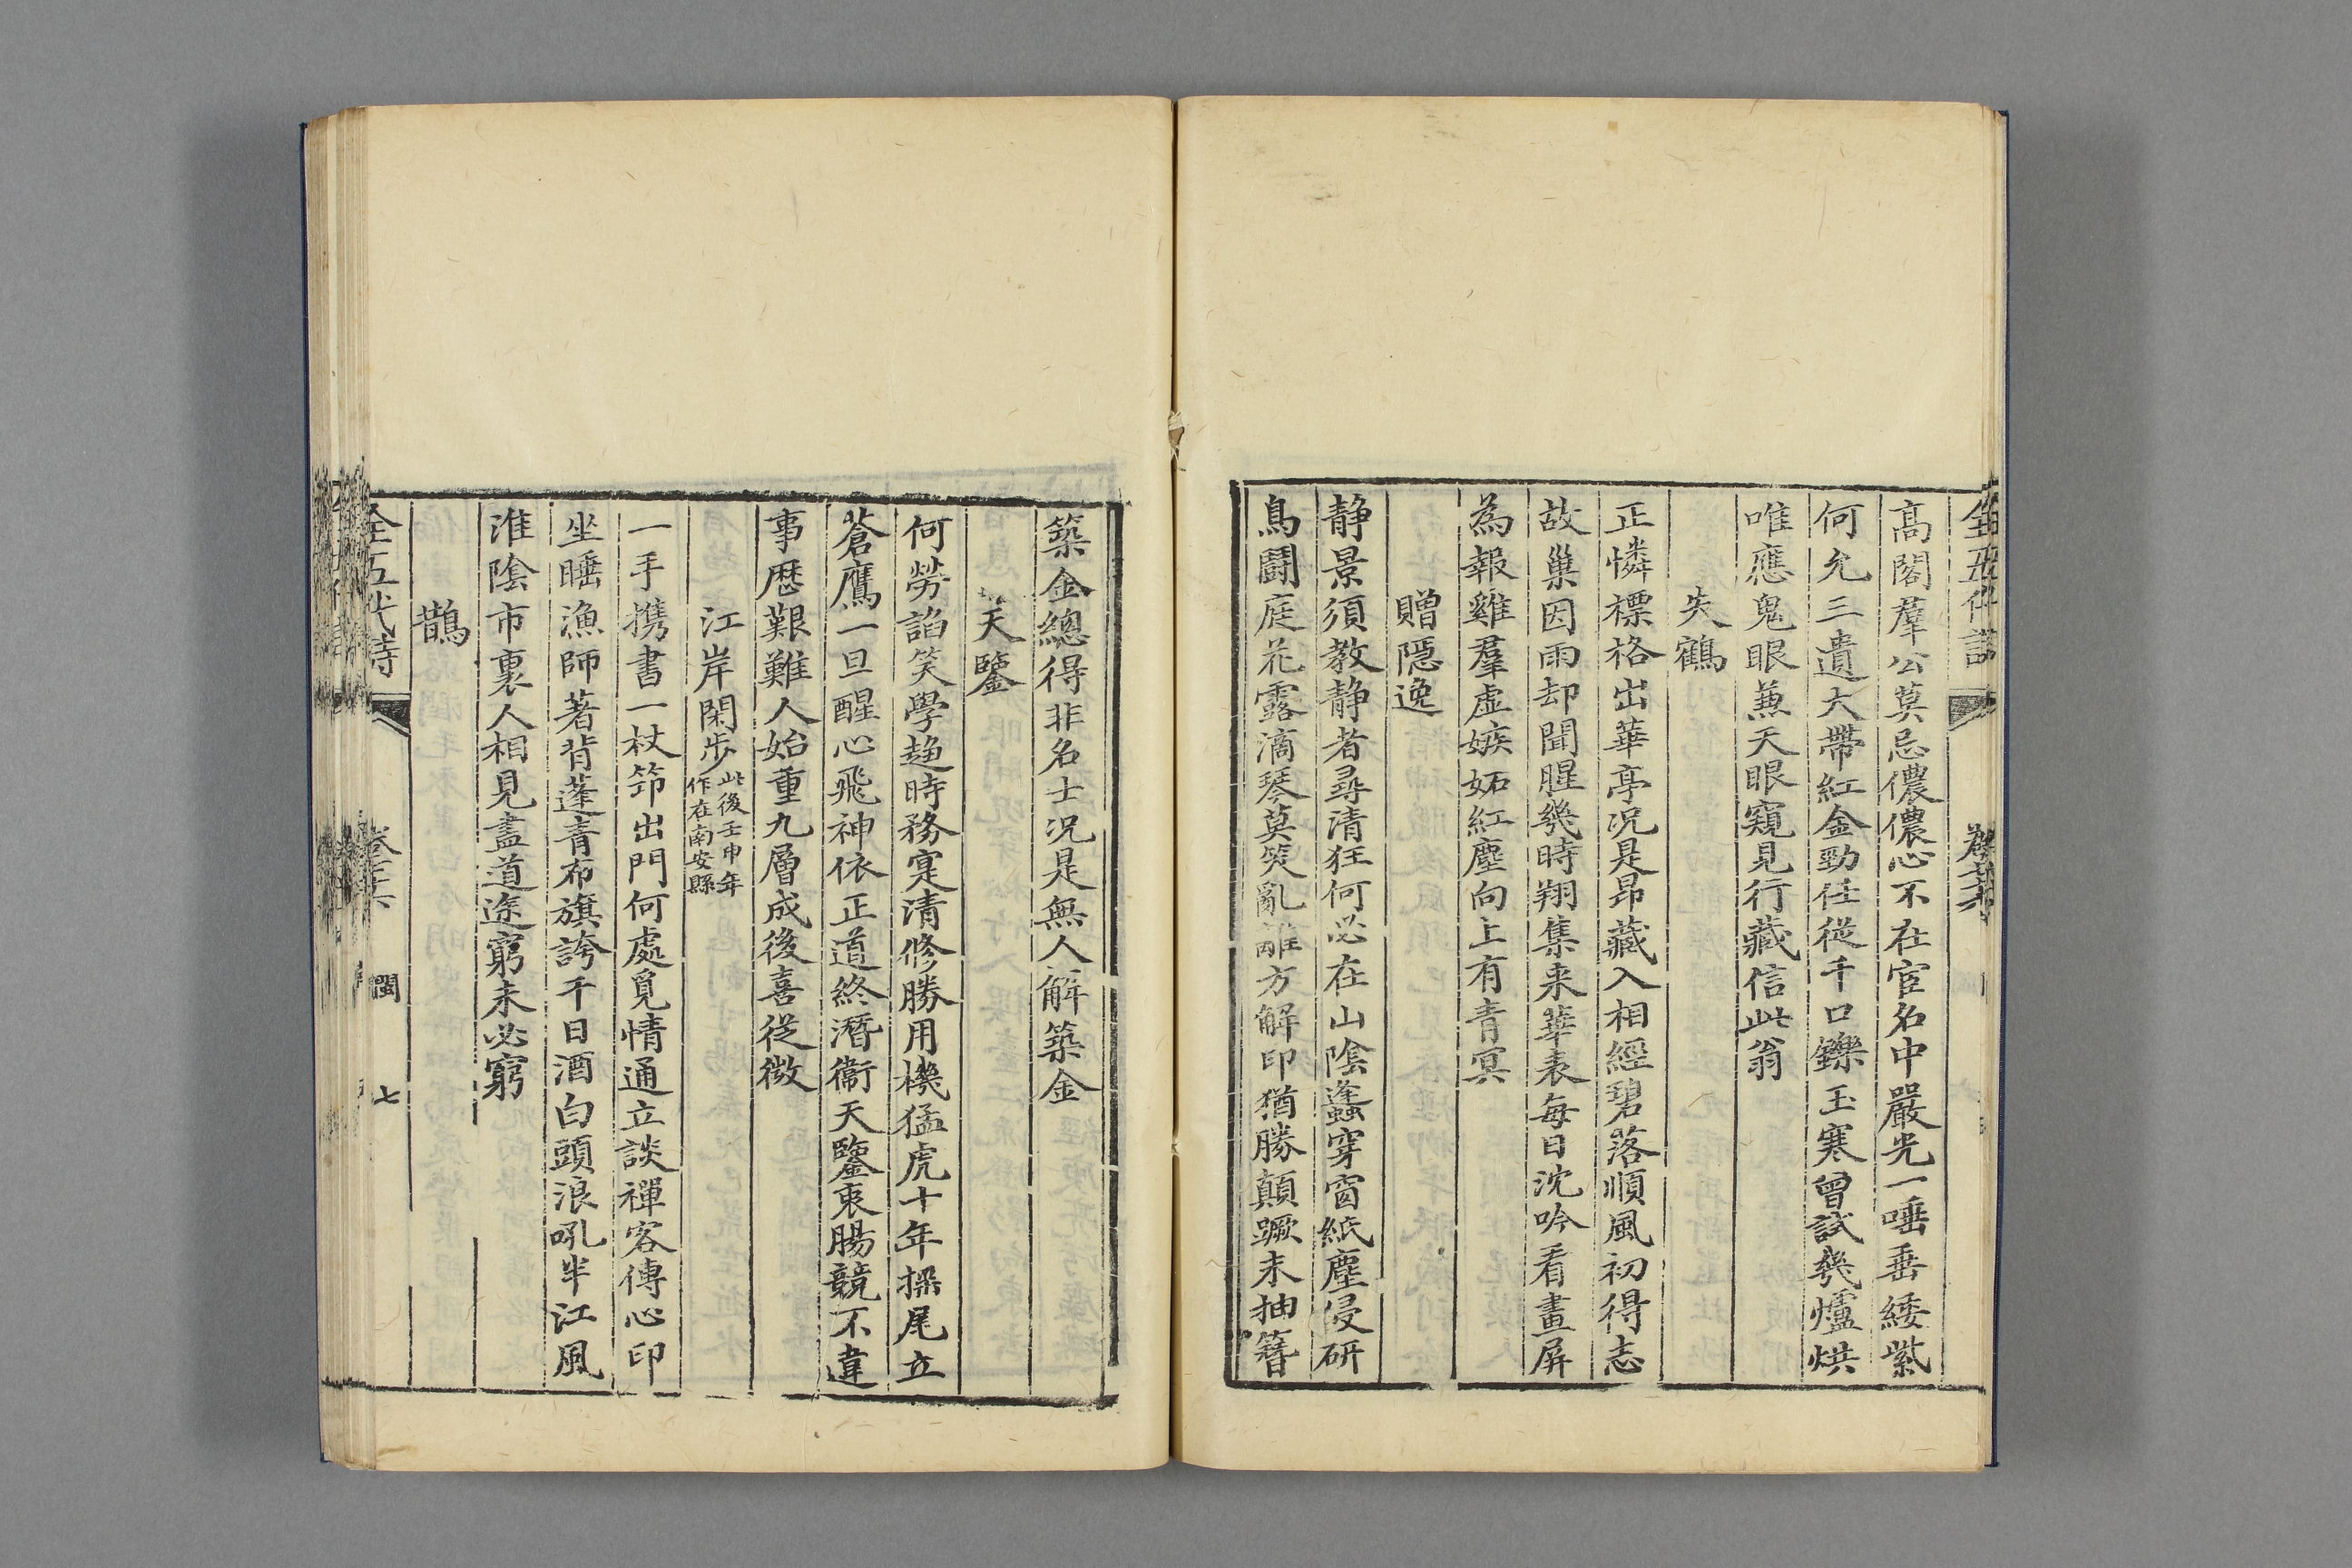 高閣羣公莫忌儂儂心不在宦名中嚴光一唾垂緌紫
何允三遺大帶紅金勁任從千口鑠玉寒曾試幾爐烘
唯應鬼眼兼天眼窺見行藏信此翁
失鶴
正憐標格出華亭况是昂藏入相經碧落順風初得志
故巢因雨却聞腥幾時翔集来華表每日沈吟看畫屏
為報雞羣虛嫉妬紅塵向上有青冥
贈隱逸
静景須教静者尋清狂何必在山陰蠭穿窗紙塵侵研
鳥鬬庭花露滴琴莫笑亂離方解印猶勝顛蹶未抽簪
築金總得非名士况是無人解築金
天鑒
何勞諂笑學趨時務寔清修勝用機猛虎十年摇尾立
蒼鷹一旦醒心飛神依正道終潛衞天鑒衷腸競不違
事歴艱難人始重九層成後喜從微
江岸閑步此後壬申年作在南安縣
一手携書一杖笻出門何處覓情通立談禪客傳心印
坐睡漁師著背蓬青布旗誇千日酒白頭浪吼半江風
淮陰市裏人相見盡道途窮未必窮
鵲
全五代詩
閩 七